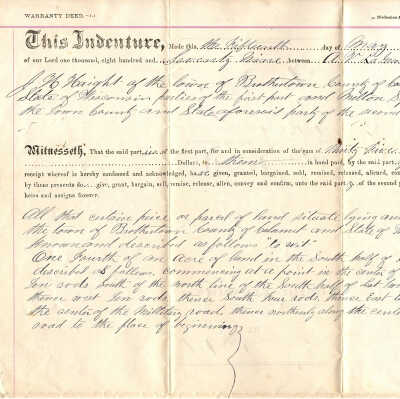 WARRANTY DEED.
This Indenture, Made this the Fifteenth day of May
of our Lord one thousand, eight hundred and Seventy Nine between
J. H. Haight of the town of Brothertown County of
State of Wisconsin parties of the first part and Milton
the Town County and State aforesaid party of the second
Witnesseth, That the said part ies of the first part, for and in consideration of the sum of Thirty
Dollars, to them in hand paid, by the said part
receipt whereof is hereby confessed and acknowledged, ha ve given, granted, bargained, sold, remised, released, aliened,
by these presents do give, grant, bargain, sell, remise, release, alien, convey and confirm, unto the said part y of the second
heirs and assigns forever.
All that certain piece or parcel of land situate lying and
the town of Brothertown County of Calumet and State of
known and described as follows "to wit"
One Fourth of an acre of land in the South half of
described as follows. commencing at a point in the center of
Ten rods South of the north line of the South half of Lot
thence west Ten rods, thence South four rods, thence East
the center of the Military road, thence northerly along the
road to the place of beginning